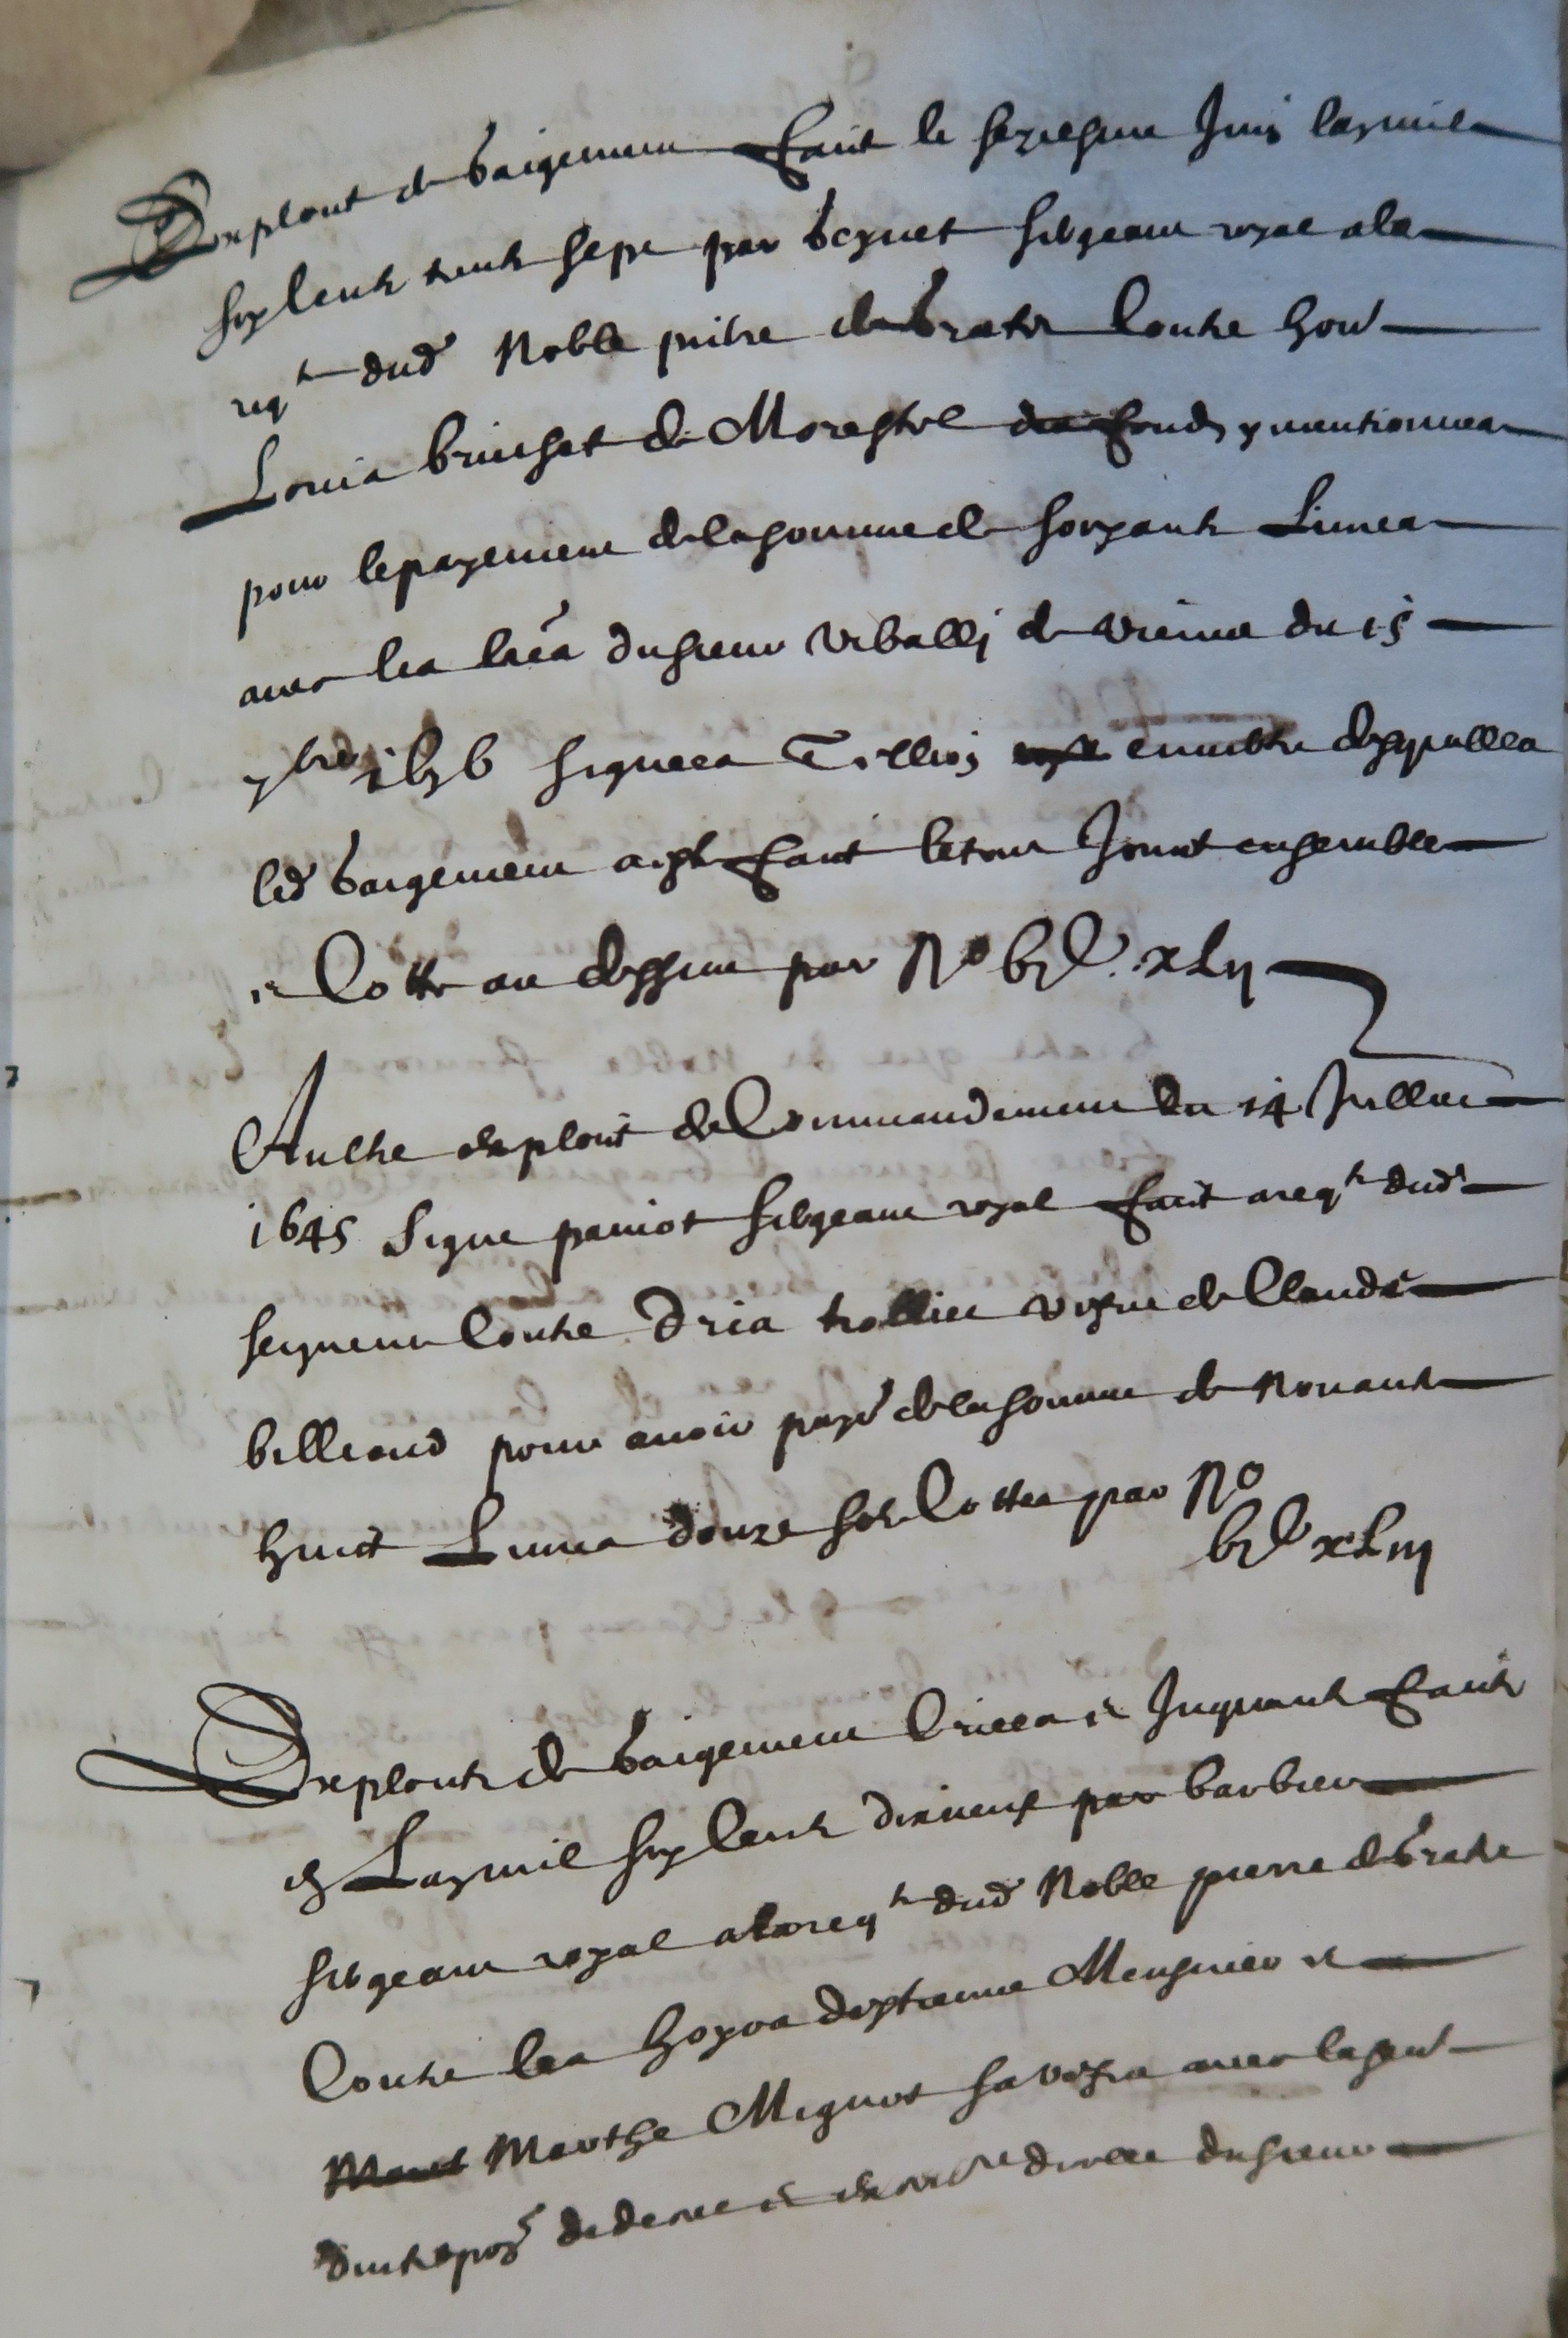 Exploit de gaigement faict le seziesme Juin lan mil
six cents trente sept par seignet sergeant royal a la
reqte dud Noble pierre de Bratte contre hon
Louis bruchet de Morestel des fonds y mentionnes
pour le payement de la somme de soixante Livres
avec les lres du sieur vibally de vienne du 15
7bre 1636 signees Tillioz en vertu desquelles
led gaigement a este faict le tout Joinct ensemble
et Cotte au dessus par No VIc XLII
Aultre exploit de Commandement du 14 Juillet
1645 Signe paviot sergeant royal faict a reqte dud
seigneur Contre trollier vefve de Claude
billioud pour avoir payet de la somme de Nonante
huict Livres douze sols Cottes par No
VIc XLIII
Exploits de gaigement Criees et Inquants faicts
en Lan mil six cents dixneuf par barbier
sergeant royal a la reqte dud Noble pierre de Bratte
Contre les hoyrs destienne Mugnier et
Marthe Mignot sa vefve avec la sent
dinterposon de decret et dicelle du sieur